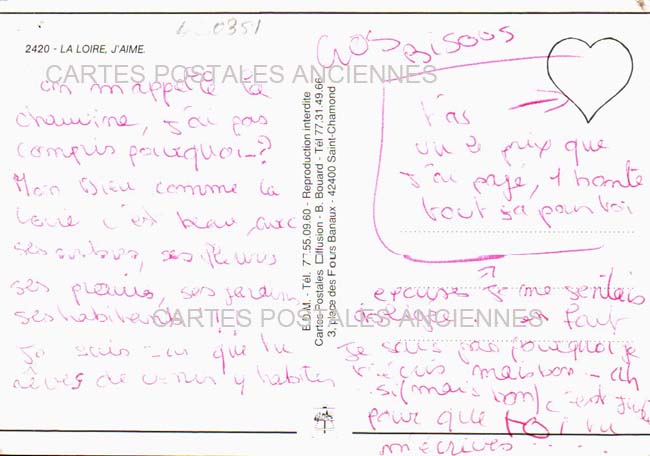 0351
2420 - LA LOIRE, J'AIME.
CARTES POSTALES ANCIENNES
on m'appelle la
chaumine, j'ai pas
compris pourquoi - ?
Mon Dieu comme la
Loire c'est beau, avec
ses arbres, ses fleurs
ses prairies, ses jardins
ses habitants !!
Je sais - - que tu
rêves de venir y habiter
E.D.M. - Tél. 77.55.09.60 - Reproduction interdite
Cartes Postales Diffusion - B. Bouard - Tél 77.31.49.66
3, place des Fours Banaux - 42400 Saint-Chamond
GROS BISOUS
T'as
vu le prix que
j'ai payé, 1 honte
tout ça pour toi
excuse je me sentais
en fait
Je sais pas pourquoi je
t'écris mais bon - ah
si (mais bon) c'est juste
pour que toi tu
m'écrives .....
CARTES POSTALES ANCIENNES